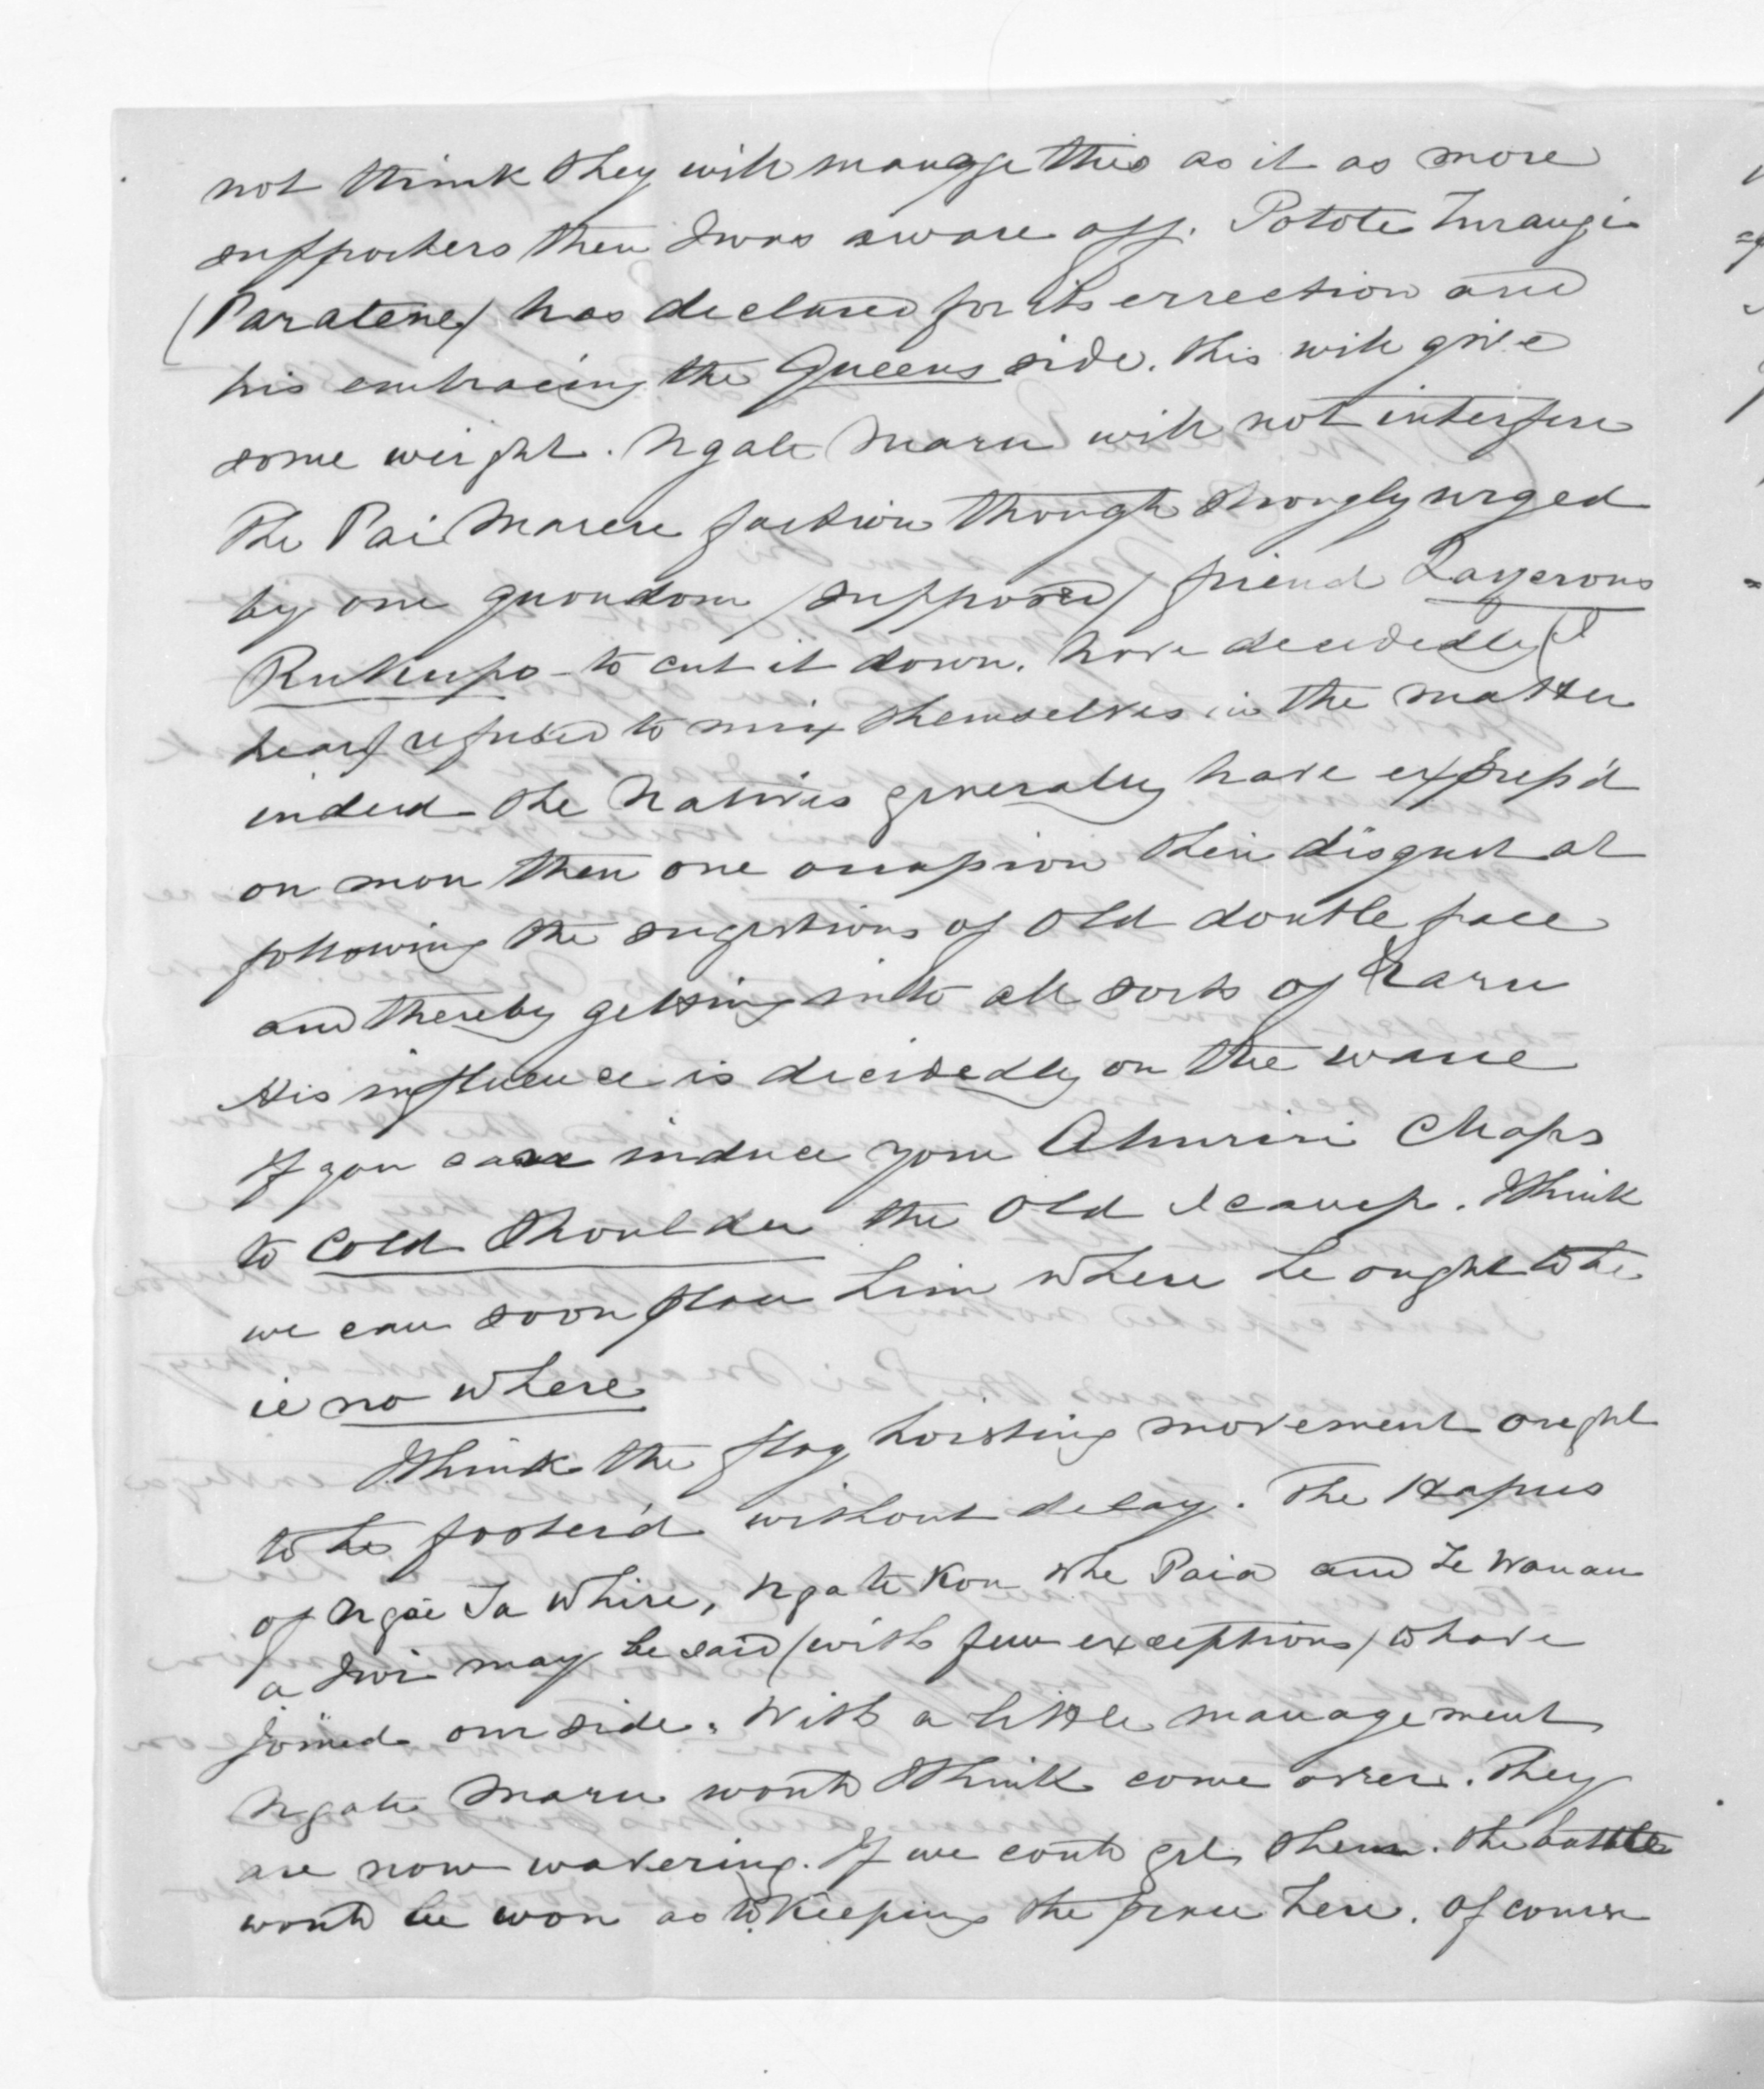 not think they will manage this as it as more
supporters then I was aware off. Potote Turangi
(Paratene) has declared for its errection and
his embracing the Queens side. this will give
some weight. Ngate Maru will not interfere
The Pai Marere faction though strongly urged
by one quondom (supposed) friend Lazerous
Rukupo - to cut it down. have decidedly (I
hear) refused to mix themselves in the matter
indeed the Natives generally have express'd
on more then one occasion their disgust at
following the sugestions of Old double face
and thereby getting into all sorts of Raru
His influence is decidedly on the wane
If you can induce your Ahuriri Chaps
to Cold Shoulder the Old Scamp. I think
we can soon place him where he ought to be
ie no where
I think the flag hoisting movement ought
to be foster'd without delay. The Hapus
of Ngai Ta Whire, Ngate Kou whe Paia and Te Wanau
a Iwi may be said (with few exceptions) to have
joined our side. With a little management
Ngate Maru would I think come over. They
are now wavering. If we could get them. the battle
would be won as to Keeping the peace here. Of course